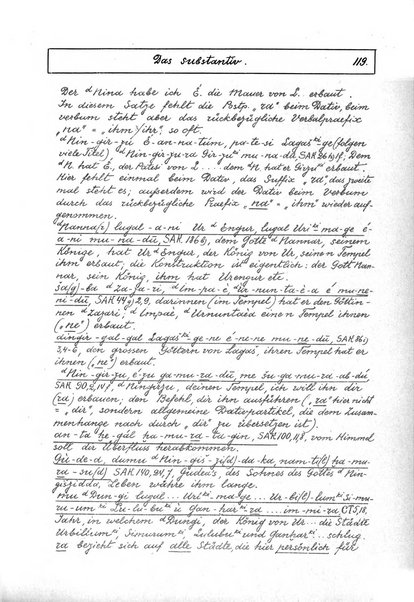 Das substantiv. 119.
Der ᵈNina habe ich É. die Mauer von L. erbaut.
In diesem Satze fehlt die Postp. „ra" beim Dativ, beim
verbum steht aber das rückbezügliche Verbalpraefix
„na" = „ihm/ihr". so oft.
ᵈNin-gir-zu É-an-na-tum, pa-te-si Lagašᵏⁱ-ge (folgen
viele Titel), ᵈNin-gir-zu-ra Gir-zu mu-na-dū, SAK. Dem
ᵈN. hat E. der Pates von L.... dem ᵈN. hat er Girzu erbaut.
Hier fehlt einmal beim Dativ, das Suffix „ra", das zweite
mal steht es; außerdem wird der Dativ beim Verbum
durch das rückbezügliche Praefix „na" = „ihm" wieder auf-
genommen.
ᵈNannar(r) lugal-a-ni Ur ᵈEngur, lugal Uriᵏⁱ-ma-ge é-
a-ni mu-na-dū, SAK. 186 b), dem Gotte ᵈNannar, seinem
Könige, hat Ur ᵈEngur, der König von Ur, seinen Tempel
ihm erbaut, die Konstruktion ist eigentlich: der Gott Nan-
nar, sein König, ihm hat Urengur etc.
ša(g)-ba ᵈza-za-ri, ᵈim-pa-é ᵈur-nun-ta-è-a é mu-ne-
ni-dū, SAK. 44 g) 2,9, darinnen (im Tempel) hat er den Göttin-
nen ᵈZazari, ᵈImpaè, ᵈUrnuntaèa einen Tempel ihnen
(„ne") erbaut.
dingir-gal-gal Lagašᵏⁱ-ge-ne é-ne-ne mu-ne-dū, SAK.
3,4-6, den grossen Göttern von Lagaš, ihren Tempel hat er
ihnen („ne") erbaut.
ᵈNin-gir-zu é-zu ga-mu-ra-dū, me šu ga-mu-ra-ab-dū
SAK. 90, Ningirzu, deinen Tempel, ich will ihn dir
(ra) erbauen; den Befehl, dir ihn ausführen („ra" hier nicht
= „dir", sondern allgemeine Dativpartikel, die dem Zusam-
menhange nach durch „dir" zu übersetzen ist).
an-ta he-gál ha-mu-ra-ta-gin, SAK. 100, vom Himmel
soll dir Überfluss herabkommen.
Gù-de-a, dumu ᵈNin-giš-zi(d)-da-ka, nam-ti(l) ha-mu-
ra-su(d) SAK. 140, Gudea's, des Sohnes des Gottes ᵈNin-
gišzidda, Leben währe ihm lange.
mu ᵈDun-gi lugal... Uriᵏⁱ-ma-ge... Ur-bi(l)-lumᵏⁱ Si-mu-
ru-umᵏⁱ Lu-lu-buᵏⁱ ù Gan-harᵏⁱ-ra .... im-mi-ra CT.
Jahr, in welchem ᵈDungi, der König von Ur... die Städte
Urbillumᵏⁱ, Simurumᵏⁱ, Lulubuᵏⁱ und Ganharᵏⁱ... schlug.
ra bezieht sich auf alle Städte, die hier persönlich für